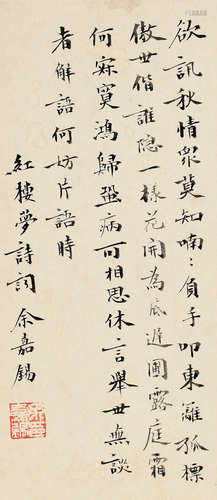 欲訊秋情眾莫知喃〻負手叩東籬孤標
傲世偕誰隱一樣花開為底遲圃露庭霜
何寂寞鴻歸蛩病可相思休言舉世無談
者解語何妨片語時
紅樓夢詩詞 余嘉錫